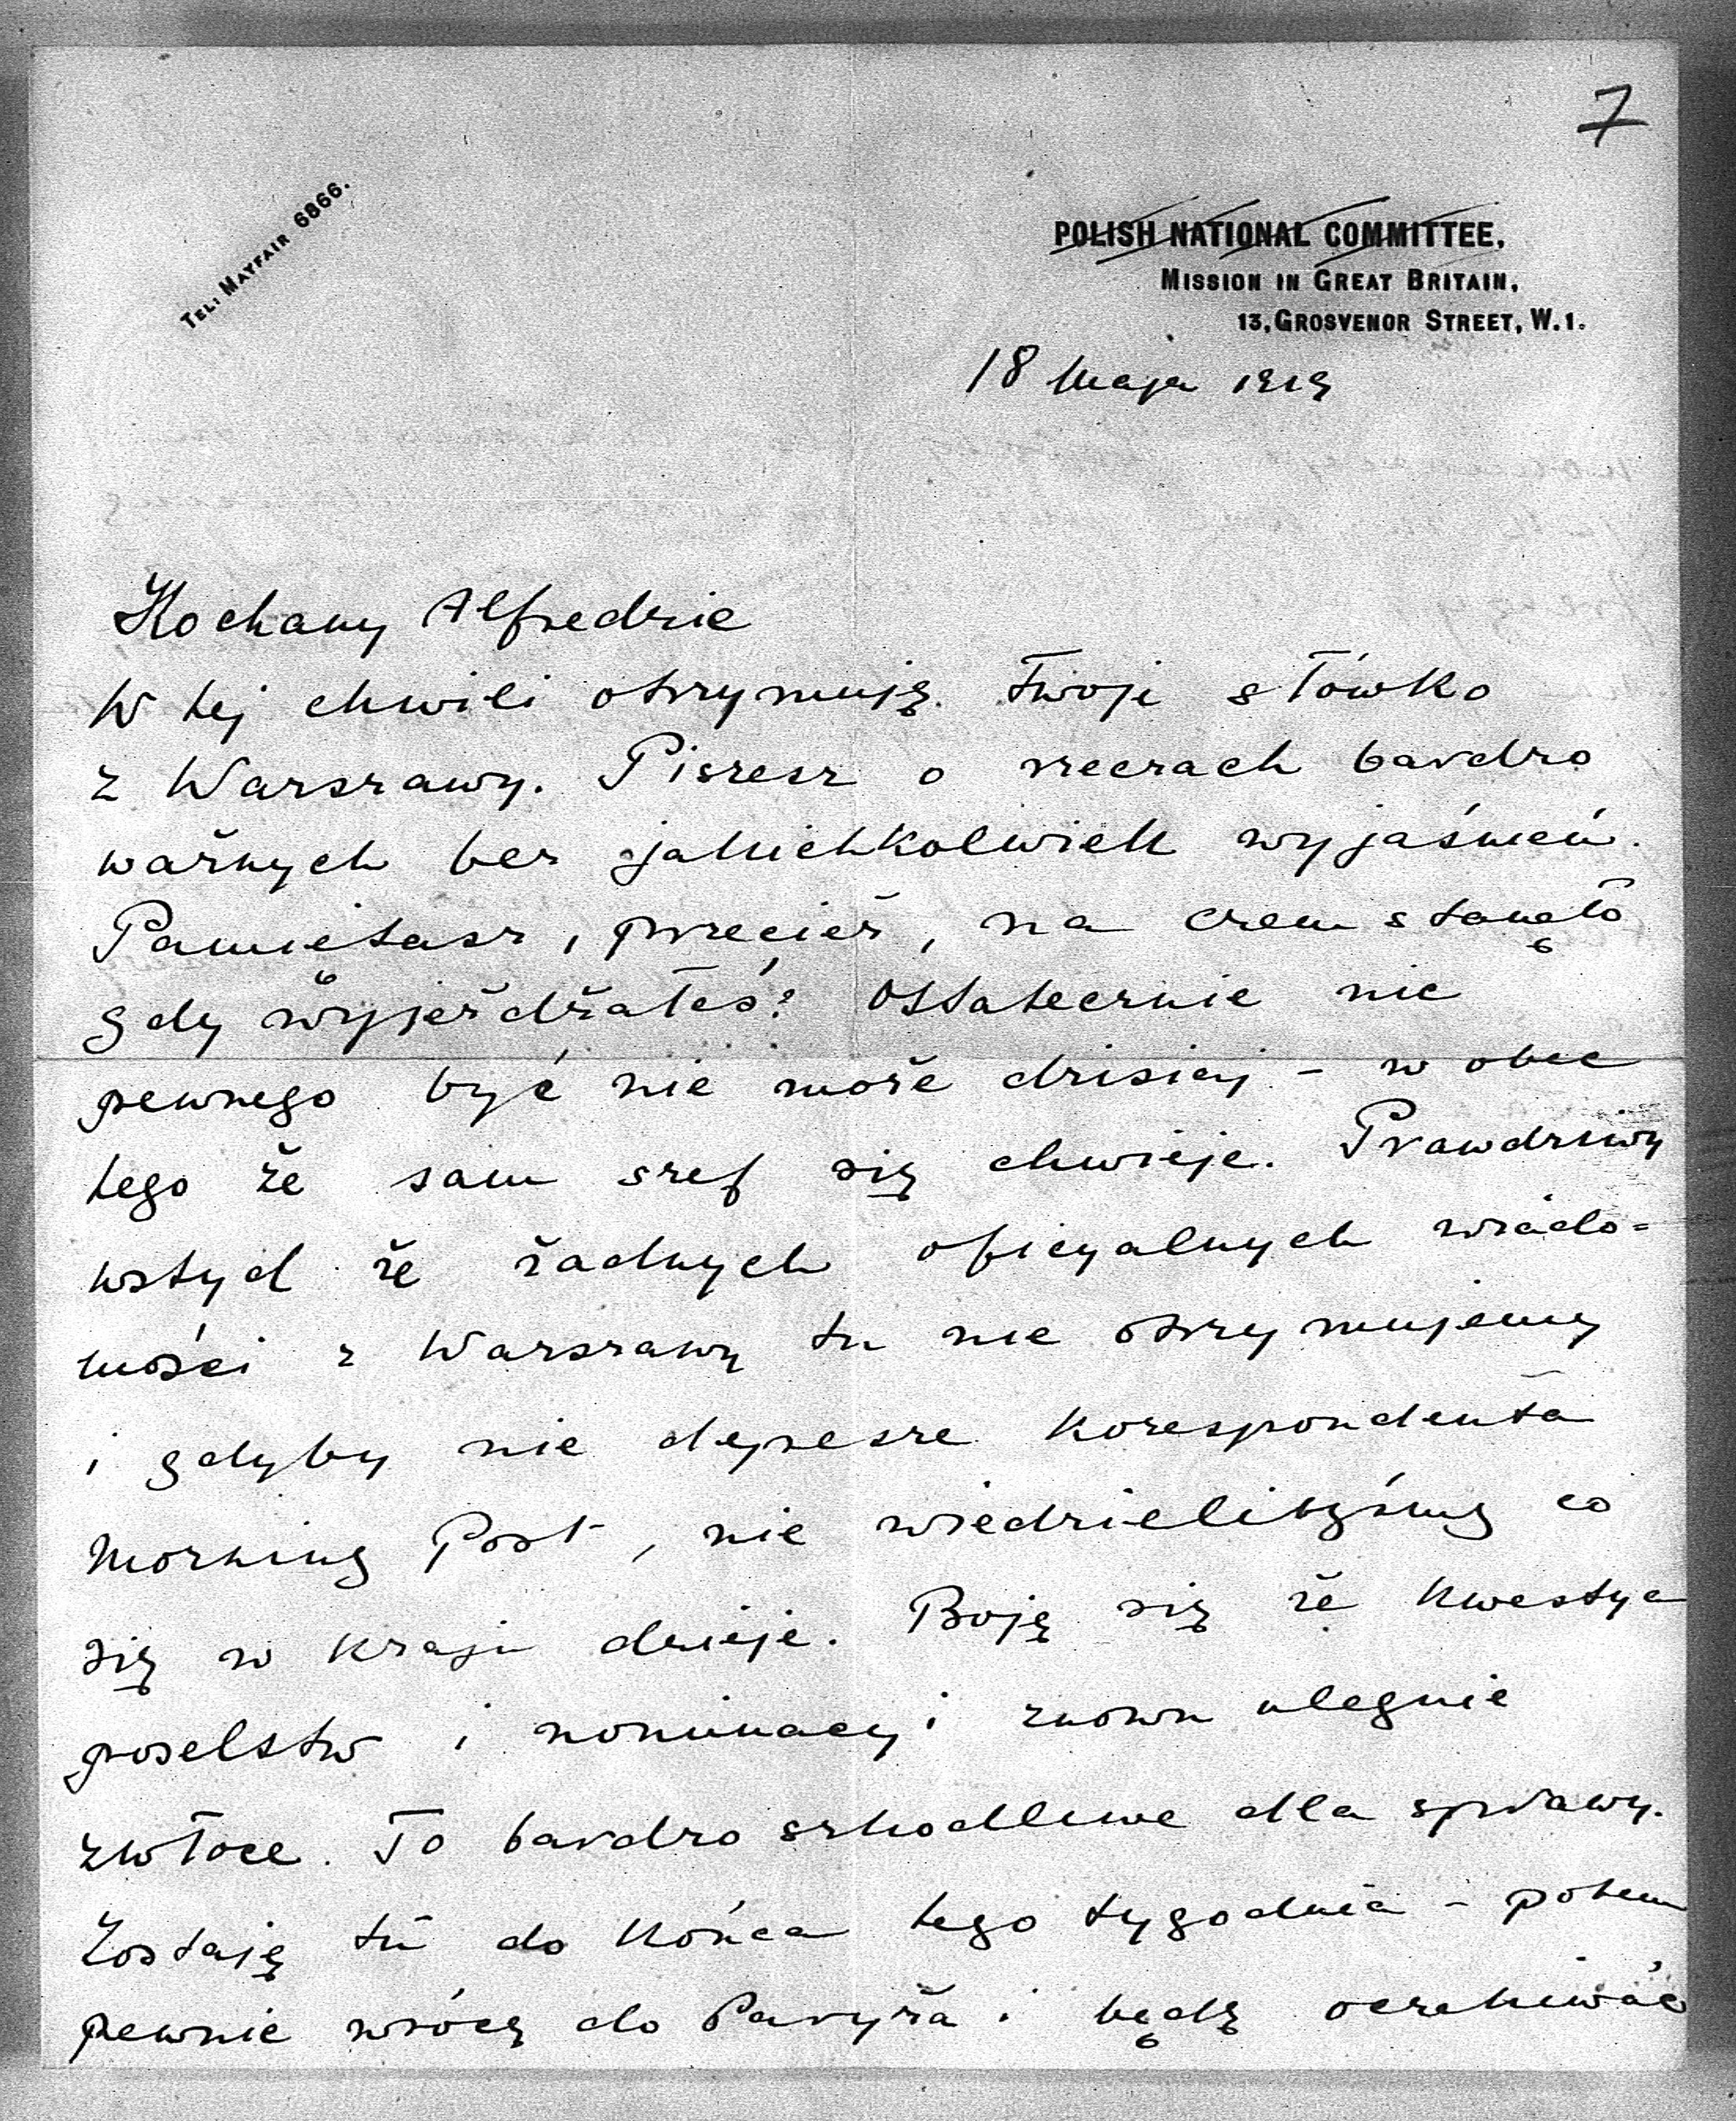 7
TEL: MAYFAIR 6866.
POLISH NATIONAL COMMITTEE,
MISSION IN GREAT BRITAIN,
13, GROSVENOR STREET, W.1.
18 Maja 1919
Kochany Alfredzie
W tej chwili otrzymuję Twoje słówko
z Warszawy. Piszesz o rzeczach bardzo
ważnych bez jakichkolwiek wyjaśnień.
Pamiętasz, przecież, na czem stanęło
gdy wyjeżdżałeś? Ostatecznie nic
pewnego być nie może dzisiaj - w obec
tego że sam szef się chwieje. Prawdziwy
wstyd że żadnych oficyalnych wiado=
mości z Warszawy tu nie otrzymujemy
i gdyby nie depesze Korespondenta
Morning Post, nie wiedzielibyśmy co
się w Kraju dzieje. Boję się że Kwestya
poselstw i nominacyi znowu ulegnie
zwłoce. To bardzo szkodliwe dla sprawy.
Zostaję tu do Końca tego tygodnia - potem
pewnie wrócę do Paryża i będę oczekiwać